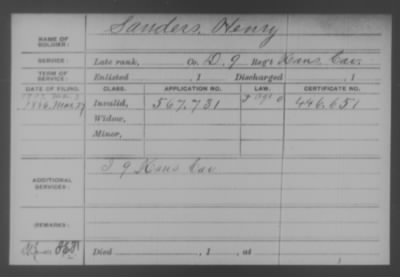 NAME OF SOLDIER: Sanders, Henry
SERVICE: Late rank, Co. D. 9 Reg't Kans Cav.
TERM OF SERVICE: Enlisted , 1 Discharged , 1
DATE OF FILING. CLASS. APPLICATION NO. LAW. CERTIFICATE NO.
1886 Invalid, 567.731 446.651
Widow,
Minor,
ADDITIONAL SERVICES: 9 Kans Cav
REMARKS:
Died , 1 , at